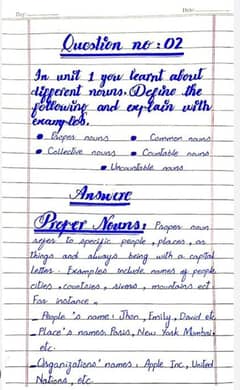 Day:
Date:
Question no: 02
In unit 1 you learnt about
different nouns. Define the
following and explain with
examples.
• Proper nouns • Common nouns
• Collective nouns • Countable nouns
• Uncountable nouns
Answere
Proper Nouns: Proper noun
refer to specific people, places, or
things and always being with a capital
letter. Examples include names of people
cities, countries, rivers, mountains ect.
For instance.
_ People's name: Jhon, Emily, David etc
_ Place's names: Paris, New York Mumbai
etc.
_ Organizations' names: Apple Inc, United
Nations, etc